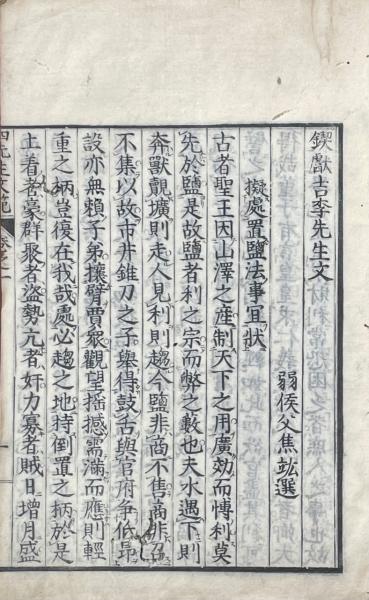 鍥獻吉李先生文
弱侯父焦竑選
擬處置鹽法事宜狀
古者聖王因山澤之産制天下之用廣効而博利莫
先於鹽是故鹽者利之宗而弊之藪也夫水遇下則
奔獸覩壙則走人見利則趨今鹽非商不售商非召
不集以故市井錐刀之子舉得鼓舌與官府爭低昻
設亦無賴子弟攘臂賈眾觀望搖撼需滿而應則輕
重之柄豈復在我哉處必趨之地持倒置之柄於是
土着老豪群聚者盜勢亢者奸力寡者賊日增月盛
四先生文範 卷之一